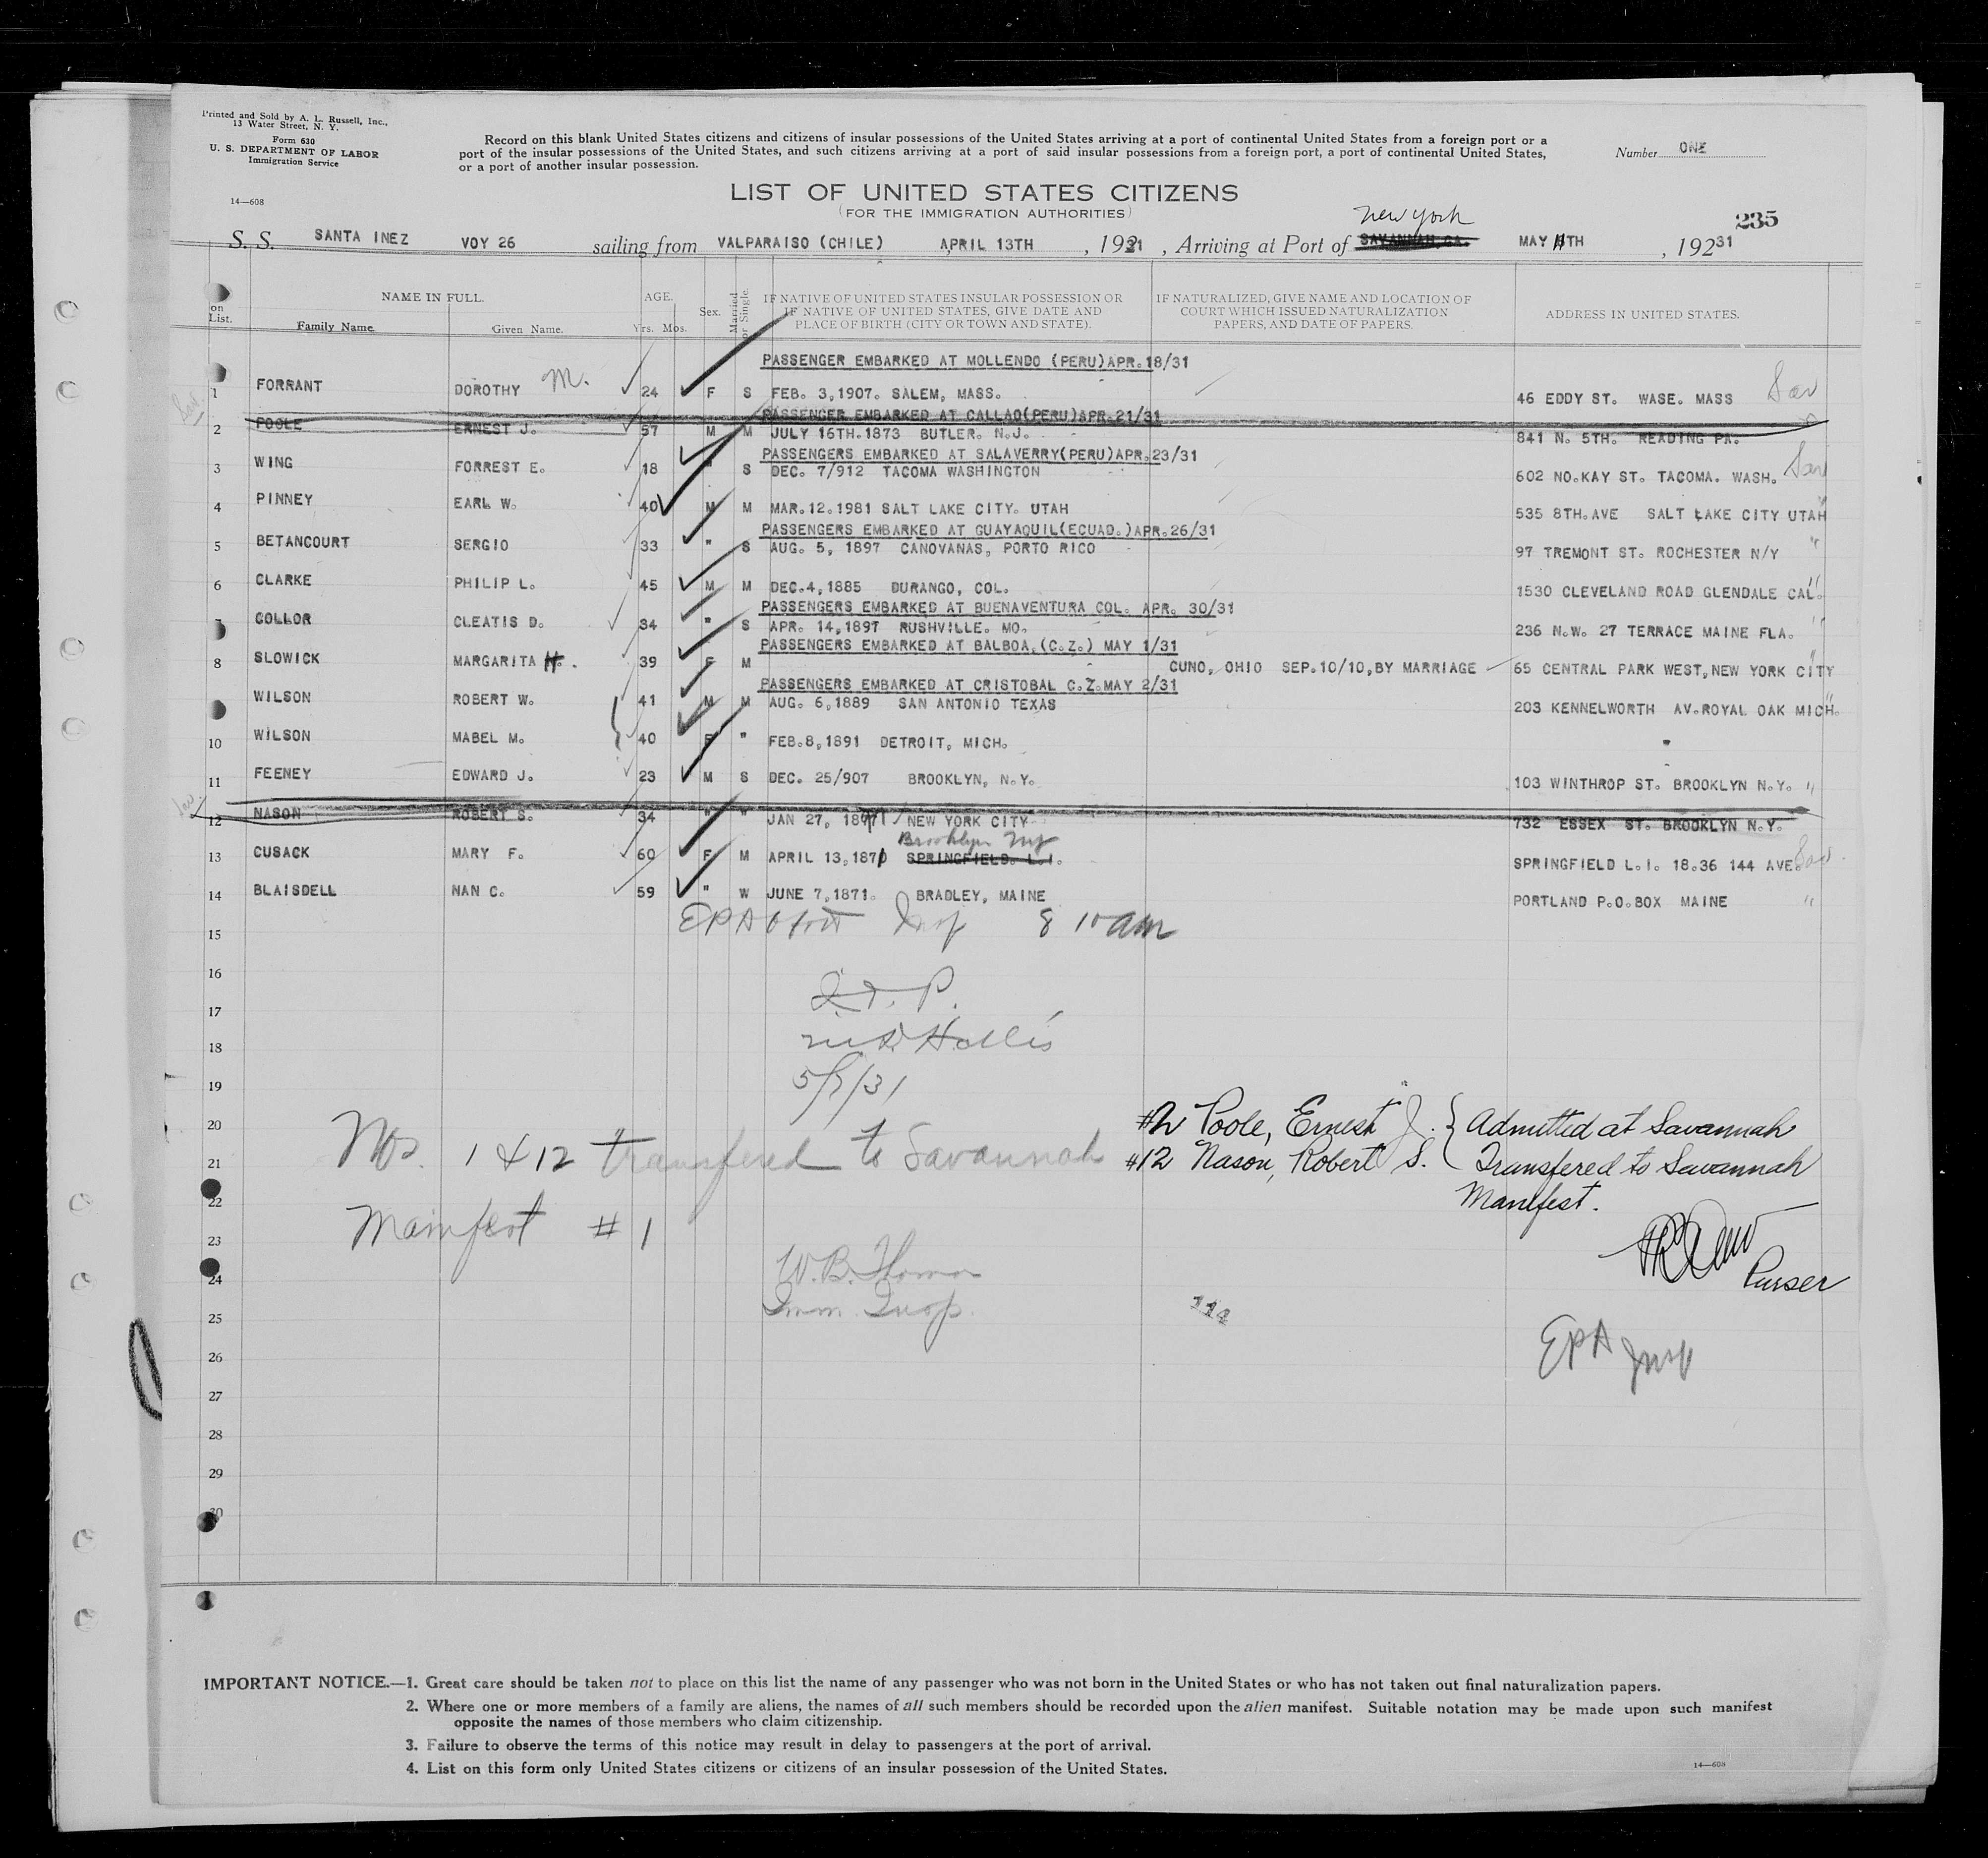 Printed and Sold by A. L. Russell, Inc.,
13 Water Street, N. Y.
Form 630
U. S. DEPARTMENT OF LABOR
Immigration Service
14—608
Record on this blank United States citizens and citizens of insular possessions of the United States arriving at a port of continental United States from a foreign port or a
port of the insular possessions of the United States, and such citizens arriving at a port of said insular possessions from a foreign port, a port of continental United States,
or a port of another insular possession.
Number ONE
LIST OF UNITED STATES CITIZENS
(FOR THE IMMIGRATION AUTHORITIES)
235
New York
S. S. SANTA INEZ VOY 26 sailing from VALPARAISO (CHILE) APRIL 13TH, 1931, Arriving at Port of SAVANNAH, GA. MAY TH, 192 31
on List. NAME IN FULL. Family Name Given Name. AGE. Yrs. Mos. Sex. Married or Single. IF NATIVE OF UNITED STATES INSULAR POSSESSION OR IF NATIVE OF UNITED STATES, GIVE DATE AND PLACE OF BIRTH (CITY OR TOWN AND STATE). IF NATURALIZED, GIVE NAME AND LOCATION OF COURT WHICH ISSUED NATURALIZATION PAPERS, AND DATE OF PAPERS. ADDRESS IN UNITED STATES.
PASSENGER EMBARKED AT MOLLENDO (PERU)APR.18/31
1 FORRANT DOROTHY M. 24 F S FEB. 3,1907. SALEM, MASS. 46 EDDY ST. WASE. MASS Sav
PASSENGER EMBARKED AT CALLAO(PERU)APR.21/31
2 POOLE ERNEST J. 57 M M JULY 16TH.1873 BUTLER. N.J. 841 N. 5TH. READING PA.
PASSENGERS EMBARKED AT SALAVERRY(PERU)APR.23/31
3 WING FORREST E. 18 " S DEC. 7/912 TACOMA WASHINGTON 602 NO.KAY ST. TACOMA. WASH. Sav
4 PINNEY EARL W. 40 M M MAR.12.1981 SALT LAKE CITY. UTAH 535 8TH.AVE SALT LAKE CITY UTAH "
PASSENGERS EMBARKED AT GUAYAQUIL(ECUAD.)APR.26/31
5 BETANCOURT SERGIO 33 " S AUG. 5, 1897 CANOVANAS, PORTO RICO 97 TREMONT ST. ROCHESTER N/Y "
6 CLARKE PHILIP L. 45 M M DEC.4,1885 DURANGO, COL. 1530 CLEVELAND ROAD GLENDALE CAL. "
PASSENGERS EMBARKED AT BUENAVENTURA COL. APR. 30/31
COLLOR CLEATIS D. 34 " S APR. 14,1897 RUSHVILLE. MO. 236 N.W. 27 TERRACE MAINE FLA. "
PASSENGERS EMBARKED AT BALBOA,(C.Z.) MAY 1/31
8 SLOWICK MARGARITA H. 39 F M CUNO, OHIO SEP.10/10,BY MARRIAGE 65 CENTRAL PARK WEST,NEW YORK CITY "
PASSENGERS EMBARKED AT CRISTOBAL C.Z.MAY 2/31
WILSON ROBERT W. 41 M M AUG. 6,1889 SAN ANTONIO TEXAS 203 KENNELWORTH AV.ROYAL OAK MICH. "
10 WILSON MABEL M. 40 F " FEB.8,1891 DETROIT, MICH. "
11 FEENEY EDWARD J. 23 M S DEC. 25/907 BROOKLYN, N.Y. 103 WINTHROP ST. BROOKLYN N.Y. "
12 NASON ROBERT S. 34 " " JAN 27, 1897 NEW YORK CITY 732 ESSEX ST. BROOKLYN N.Y.
Brooklyn NY
13 CUSACK MARY F. 60 F M APRIL 13,1870 SPRINGFIELD. L.I. SPRINGFIELD L.I. 18.36 144 AVE. Sav
14 BLAISDELL NAN C. 59 " W JUNE 7,1871. BRADLEY, MAINE PORTLAND P.O.BOX MAINE "
Insp 8 10 am
15
16
17
18
5/7/31
19
20
21
22
23
24
25
26
27
28
29
30
Nos. 1 & 12 transfered to Savannah
Manifest # 1
W. B. Thomas
Imm. Insp.
#2 Poole, Ernest J. } Admitted at Savannah
#12 Nason, Robert S. Transfered to Savannah
Manifest.
Purser
114
EPA Insp
IMPORTANT NOTICE.—1. Great care should be taken not to place on this list the name of any passenger who was not born in the United States or who has not taken out final naturalization papers.
2. Where one or more members of a family are aliens, the names of all such members should be recorded upon the alien manifest. Suitable notation may be made upon such manifest
opposite the names of those members who claim citizenship.
3. Failure to observe the terms of this notice may result in delay to passengers at the port of arrival.
4. List on this form only United States citizens or citizens of an insular possession of the United States.
14—608